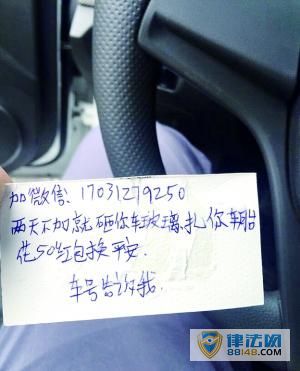 加微信: 17031279250
两天不加就砸你车玻璃、扎你车胎
花50红包换平安.
车号告诉我.
律法网
88148.com